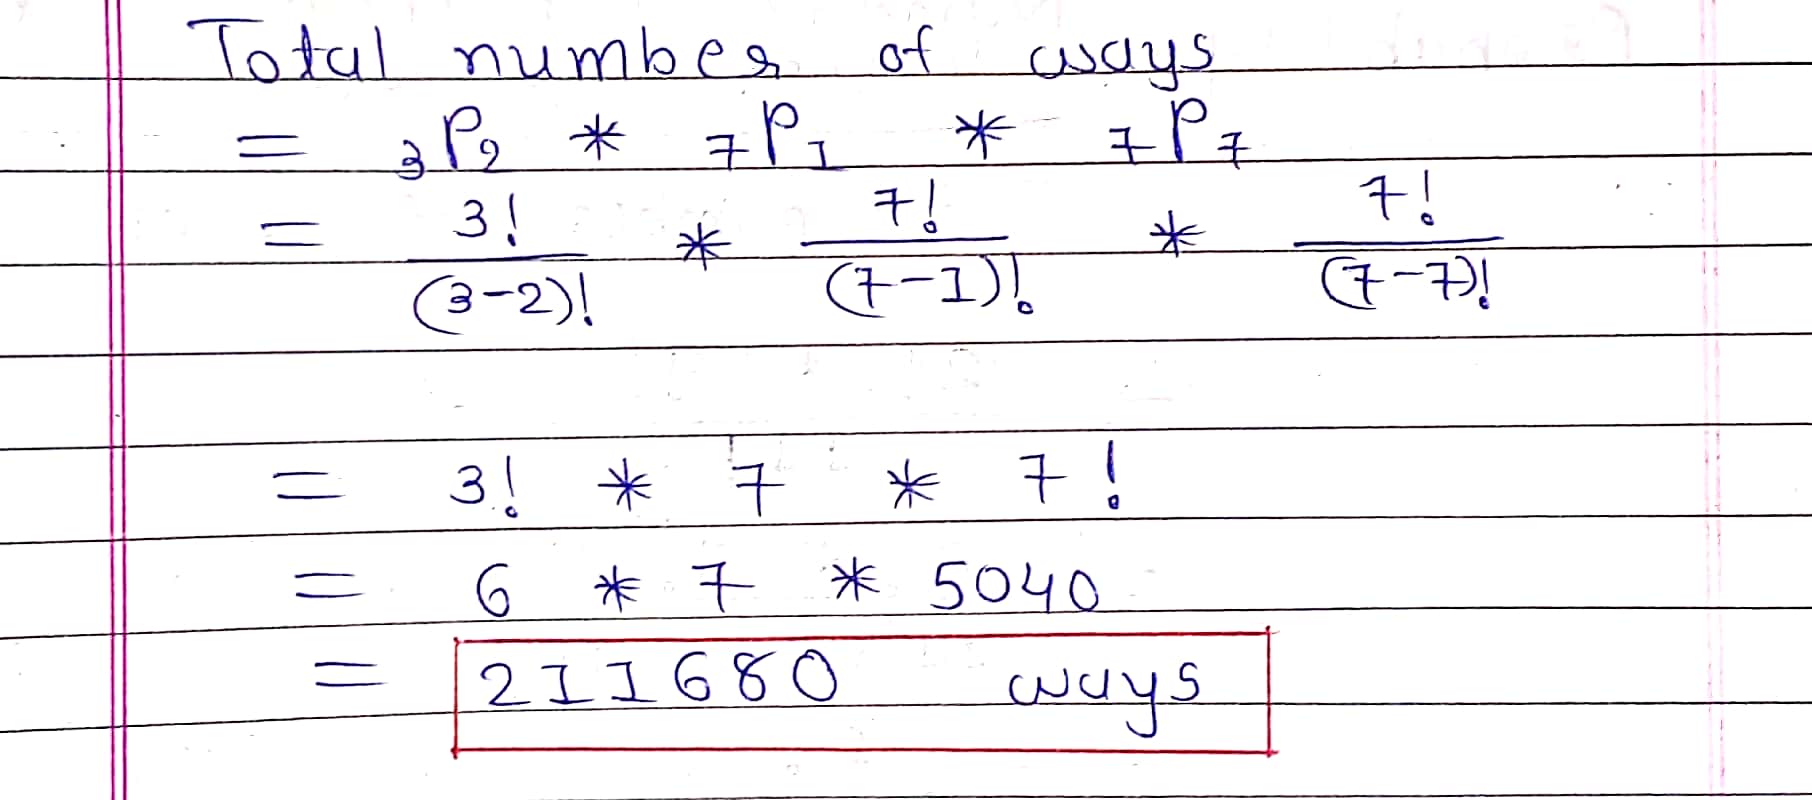 Total number of ways
= 3P2 * 7P1 * 7P7
= 3!/(3-2)! * 7!/(7-1)! * 7!/(7-7)!
= 3! * 7 * 7!
= 6 * 7 * 5040
= 211680 ways